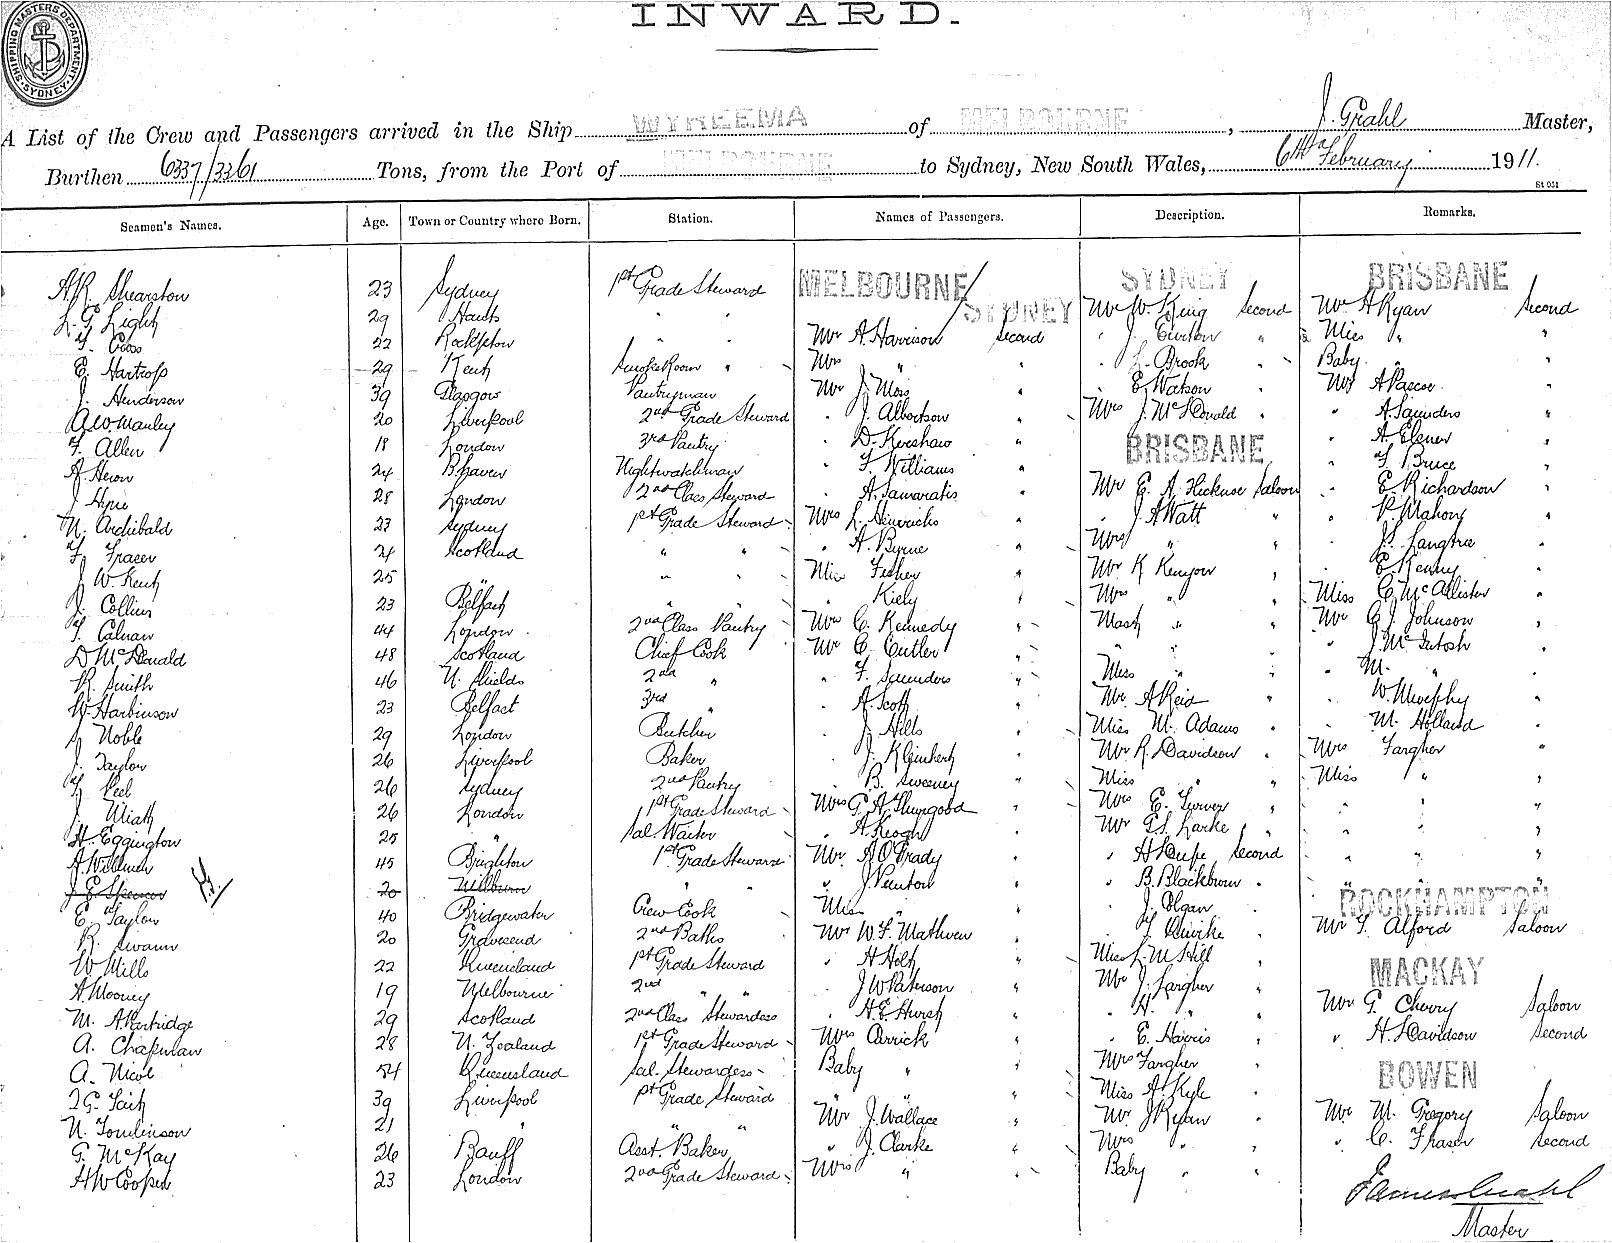 INWARD.
SHIPPING MASTERS DEPARTMENT SYDNEY
A List of the Crew and Passengers arrived in the Ship WYREEMA of MELBOURNE, J. Grahl Master,
Burthen 6337/3361 Tons, from the Port of MELBOURNE to Sydney, New South Wales, 6th February 1911.
St 051
Seamen's Names. Age. Town or Country where Born. Station. Names of Passengers. Description. Remarks.
A.R. Shearston 23 Sydney 1st Grade Steward
L.G. Light 29 Hants " "
F. Coss 22 Rockpton " "
E. Hartrop 29 Kent Smoke Room "
J. Henderson 39 Glasgow Pantryman
A.W. Manley 20 Liverpool 2nd Grade Steward
F. Allen 18 London 3rd Pantry
A. Heron 24 Nightwatchman
J. 28 London 2nd Class Steward
N. Archibald 23 Sydney 1st Grade Steward
F. Fraser 24 Scotland " "
J.W. Kent 25 " " "
J. Collins 23 Belfast " "
T. Calnan 44 London 2nd Class Pantry
D McDonald 48 Scotland Chief Cook
R. Smith 46 N. Shields 2nd "
W. Harbinson 23 Belfast 3rd "
J. Noble 29 London Butcher
J. Taylor 26 Liverpool Baker
F. Peel 26 Sydney 2nd Pantry
J. 26 London 1st Grade Steward
H. Eggington 25 " Sal Waiter
A. Wellman 45 Brighton 1st Grade Steward
J E Spencer 20 " "
E. Taylor 40 Bridgewater Crew Cook
R. Swann 20 Gravesend 2nd Baths
W Mills 22 Queensland 1st Grade Steward
A. Mooney 19 Melbourne 2nd " "
M. A. Partridge 29 Scotland 2nd Class Stewardess
A. Chapman 28 N. Zealand 1st Grade Steward
A. Nicol 54 Queensland Sal. Stewardess
Tait 39 Liverpool 1st Grade Steward
N. Tomlinson 21 " " "
G. McKay 26 Banff Asst. Baker
H W Cooper 23 London 2nd Grade Steward
MELBOURNE / SYDNEY
Mr A. Harrison Second
Mrs " "
Mr J. Moss "
" J. Albertson "
" D. Kershaw "
" F. Williams "
" A. Samaratis "
Mrs L. Heinrichs "
" A. Byrne "
Miss Fisher "
" Kiely "
Mrs C. Kennedy "
Mr C. Cutler "
" F. Saunders "
" A. Scott "
" J. Hills "
" J. "
" B. Sweeney "
Mrs G. A. "
" A. Keogh "
Mr. A O'Grady "
" J. Penton "
Miss " "
Mr W. F. Mathven "
" H Holt "
" J W Paterson "
" H. E. Hurst "
Mrs Carrick "
Baby " "
Mr J. Wallace "
" J. Clarke "
Mrs " "
SYDNEY
Mr W. King Second
" J. "
" L. Brook "
" E. Watson "
Mrs J. McDonald "
BRISBANE
Mr E. A. Saloon
" J. A Watt "
Mrs " "
Mr K Kenyon "
Mrs " "
Mast " "
Miss " "
Mr. A Reid "
Miss M. Adams "
Mr R. Davidson "
Miss " "
Mrs E. Turner "
Mr G S. Larke "
" H Second
" B. Blackbrow "
" J. Olgan "
" T. Quirke "
Miss L. M Hill "
Mr J. Fargher "
" H. " "
" E. Harris "
Mrs Fargher "
Miss A. Kyle "
Mr. J Ryan "
Mrs " "
Baby " "
BRISBANE
Mr A Ryan Second
Miss " "
Baby " "
Mr A Pascoe "
" A. Saunders "
" A "
" F. Bruce "
" E. Richardson "
" P. Mahony "
" P. Langtree "
" E. Kenny "
Miss C. McAllister "
Mr C. J. Johnson "
" J. McIntosh "
" M. " "
" W. Murphy "
" M. Holland "
Mrs Fargher "
Miss " "
" " "
" " "
" " "
" " "
ROCKHAMPTON
Mr F. Alford Saloon
MACKAY
Mr G. Cherry Saloon
" H. S Davidson Second
BOWEN
Mr M. Gregory Saloon
" C. Fraser Second
James Grahl
Master